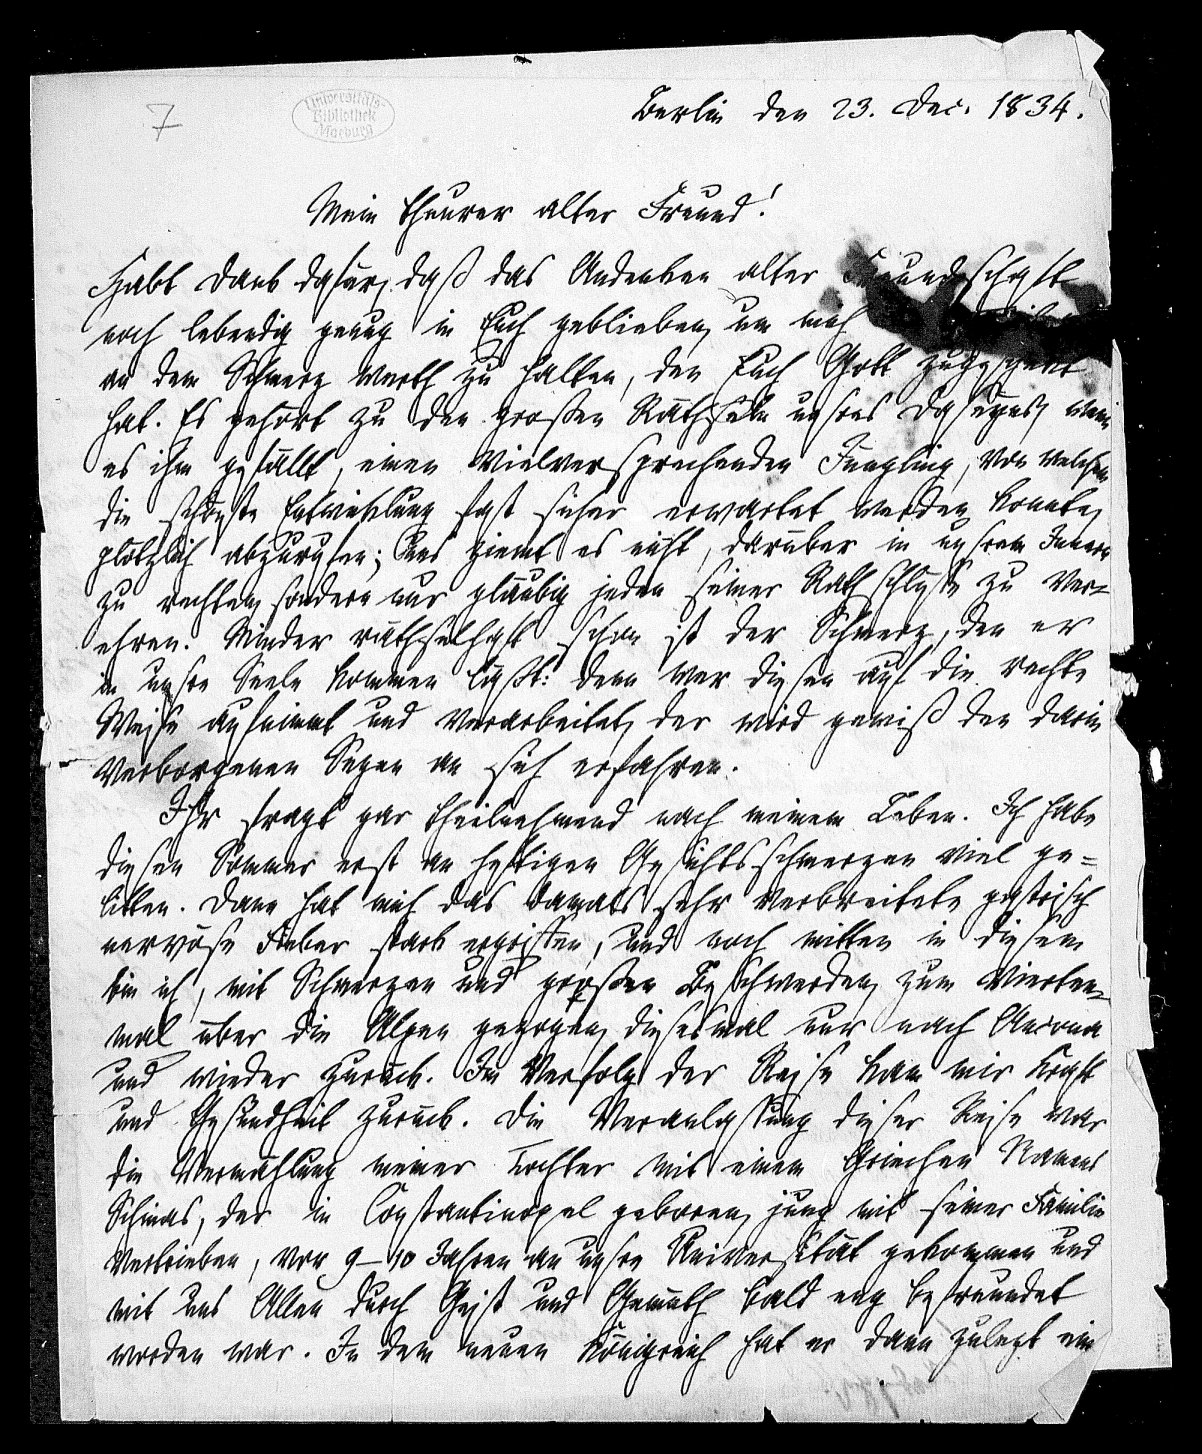 7
Universitäts-
Bibliothek
Marburg
Berlin den 23. Dec. 1834.
Mein theurer alter Freund!
Habt Dank dafür, daß das Andenken alter Freundschaft
noch lebendig genug in Euch geblieben, um mich
an dem Schmerz werth zu halten, den Euch Gott zugeschickt
hat. Es gehört zu den großen Räthseln unsres Daseyns, wenn
es ihm gefällt, einen vielversprechenden Jüngling, von welchem
die schönste Entwicklung fast sicher erwartet werden konnte,
plötzlich abzurufen; uns ziemt es nicht, darüber in unsrem Innern
zu rechten, sondern nur gläubig jeden seiner Rathschlüsse zu ver-
ehren. Minder räthselhaft schon ist der Schmerz, den er
in unsre Seele kommen läßt: denn wer diesen auf die rechte
Weise aufnimmt und verarbeitet, der wird gewiß den darin
verborgenen Segen an sich erfahren.
Ihr fragt gar theilnehmend nach meinem Leben. Ich habe
diesen Sommer erst an heftigen Gesichtsschmerzen viel ge-
litten. Dann hat mich das damals sehr verbreitete gastrisch
nervöse Fieber stark ergriffen, und noch mitten in diesem
bin ich, mit Schmerzen und großen Beschwerden, zum vierten-
mal über die Alpen gezogen, diesesmal nur nach Ancona
und wieder zurück. Im Verfolg der Reise kam mir Kraft
und Gesundheit zurück. Die Veranlassung dieser Reise war
die Vermählung meiner Tochter mit einem Griechen Namens
Schinas, der in Constantinopel geboren, jung mit seiner Familie
vertrieben, vor 9–10 Jahren an unsre Universität gekommen und
mit uns Allen durch Geist und Gemüth bald eng befreundet
worden war. In dem neuen Königreich hat er dann zuletzt ein